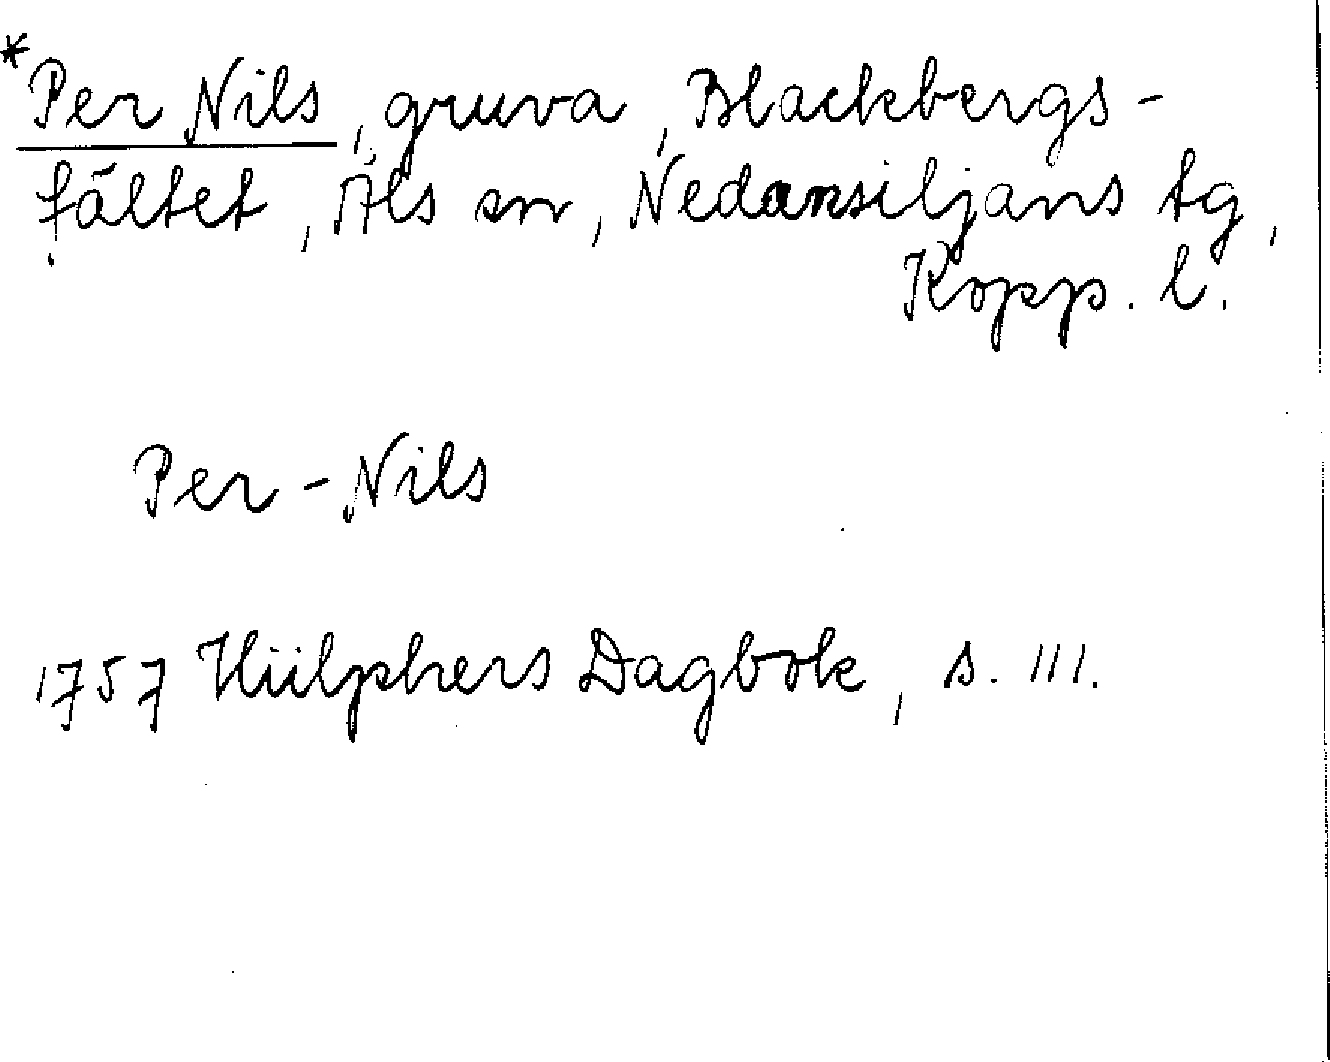 * Per Nils, gruva, Blackbergs-
fältet, Åls sn, Nedansiljans tg,
Kopp. l.
Per-Nils
1757 Hülphers Dagbok, s. 111.